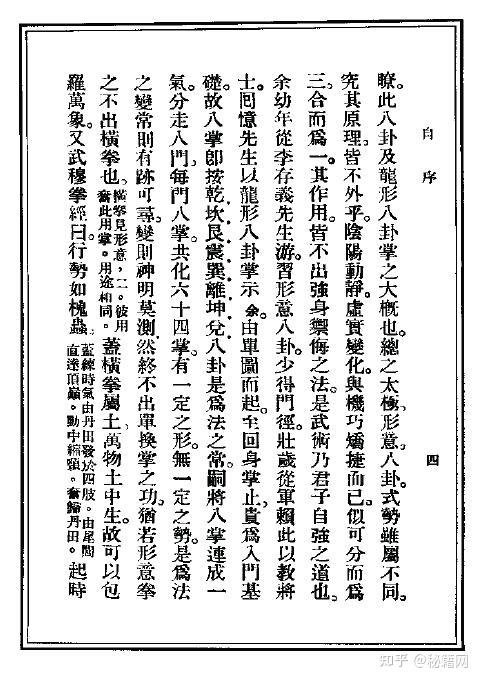 自序
四
瞭。此八卦及龍形八卦掌之大概也。總之太極。形意。八卦。式勢雖屬不同。
究其原理。皆不外乎。陰陽動靜。虛實變化。與機巧矯捷而已。似可分而爲
三。合而爲一。其作用。皆不出強身禦侮之法。是武術乃君子自強之道也。
余幼年從李存義先生游。習形意八卦。少得門徑。壯歲從軍。賴此以教將
士。囘憶先生以龍形八卦掌示余。由單圖而起。至回身掌止。貴爲入門基
礎。故八掌卽按乾坎艮震巽離坤兌八卦。是爲法之常。嗣將八掌連成一
氣。分走八門。每門八掌。共化六十四掌。有一定之形。無一定之勢。是爲法
之變。常則有跡可尋。變則神明莫測。然終不出單換掌之功。猶若形意拳
之不出橫拳也。橫拳見形意,一。彼用此用掌。用途相同。蓋橫拳屬土。萬物土中生。故可以包
羅萬象。又武穆拳經曰。行勢如槐蟲。蓋練時氣由丹田發於四肢。由尾閭直達頂巔。動中縮。歸丹田。起時
知乎 @秘籍网